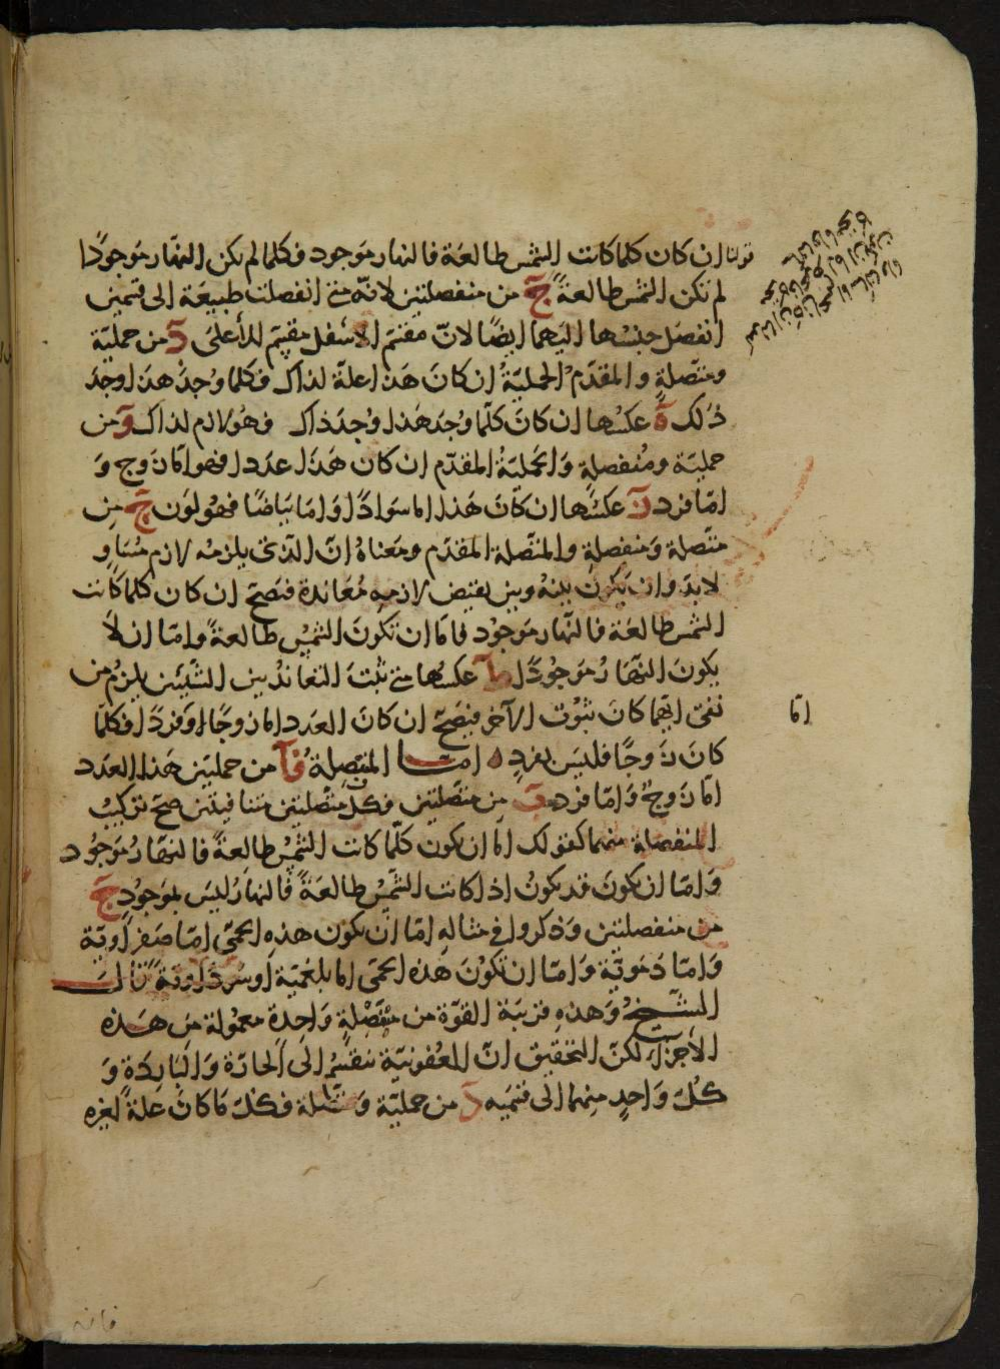 قولنا ان كان كلما كانت الشمس طالعة فالنهار موجود فكلما لم يكن النهار موجودًا
لم تكن الشمس طالعةً جٓ من منفصلتين لانّه متى انفصلت طبيعة الى قسمين
انفصل جنسها اليهما ايضًا لانّ مقسّم الاسفل مقسّم للأعلى دٓ من حمليّة
ومتّصلةٍ والمقدّمُ الحمليّةُ ان كانَ هذا علّة لذاك فكلما وُجدَ هذا وجدَ
ذلك هٓ عكسُها ان كانَ كلّما وُجدَ هَذا وُجدَ ذاك فهُو لازم لذاك وٓ من
حمليّة ومُنفصلةٍ وَالحمليّةُ المقدّم ان كان هَذا عددا فهو امّا زوج وَ
امّا فرد زٓ عكسُها ان كانَ هَذا اما سَوادًا وَامّا بَيَاضًا فهُو لَون حٓ من
متّصلة وَمنفصلةٍ والمتّصلة المقدّم ومعناهُ انّ الّذي يلزمه لازم مُسَاوٍ
لابدّ وان يكونَ بينهُ وبين نقيض لازمهِ مُعَاندة فيَصحّ ان كان كلما كانت
الشمس طالعَة فالنّهار موجُود فامّا ان تكونَ الشمسُ طالعةً وامّا ان لا
يكونَ النهَارُ مَوجُودًا طٓ عكسُها متى ثبتَ التعاندُ بين الشيئين يلزمُ من
نفي ايّهما كانَ ثبُوت الآخر فيصَحّ ان كانَ العدد امّا زوجًا اوَ فردًا فكلّما
امّا
كانَ زَوجًا فليسَ بفردٍ ه امّا المنفصِلةُ فآ من حمليتين هَذا العَدد
امّا زوجٌ وَامّا فرد بٓ من متّصلتين فكلّ متّصلتين متنافيتين صحّ تركيبُ
المنفصلة منهما كقولك امّا ان يكون كلّما كانت الشمسُ طالعةً فالنهارُ موجُود
وَامّا ان يكونَ قد يكونُ اذا كانت الشمسُ طالعَةً فالنهارُ ليسَ بموجُودٍ جٓ
من منفصلتين وَذكروا في مثالهِ امّا ان يكون هذهِ الحمّى امّا صَفراويّة
وَامّا دَمَويّة وَامّا ان تكُونَ هَذه الحمّى امّا بلغَميّة اَو سَوداويّة قالَ
الشيخُ وَهذهِ قريبَة القوّة من منفَصْلةٍ وَاحدةٍ معمُولة من هَذه
الأجزاء لكنّ التحقيق انّ العُفونيّة تنقسمُ الى الحارّة وَالبَاردَةِ وَ
كُلّ وَاحدٍ منهما الى قسمَيه دٓ من حمليّة وَمتّصلة فكلّ مَا كانَ علّةً لغيره